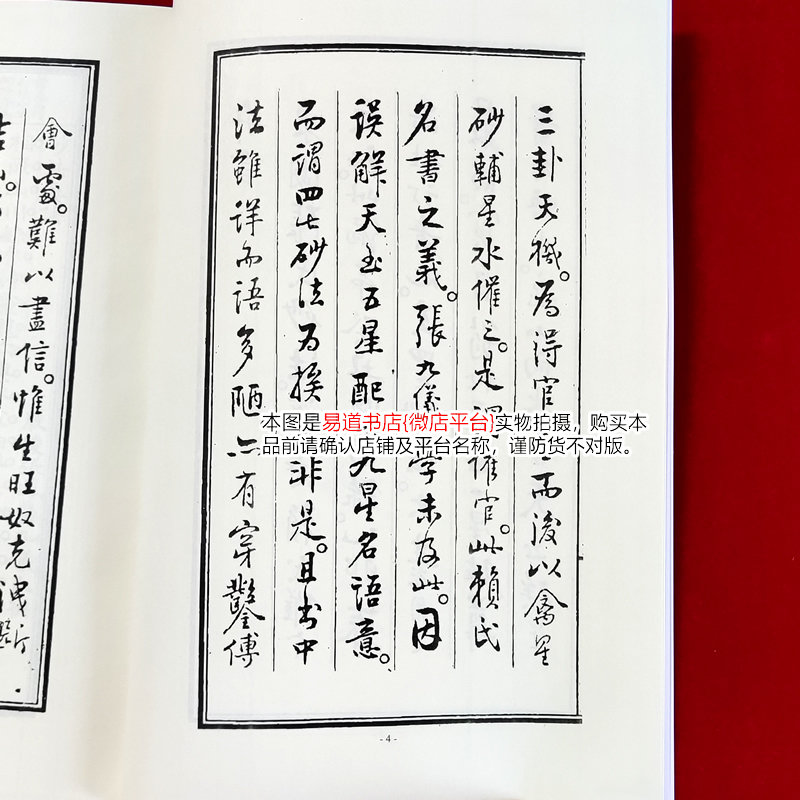 三卦天機。為得官　而後以禽星
砂輔星水催之。是謂催官。此賴氏
名書之義。張九儀　學未及此。因
誤解天玉五星配　九星名語意。
而謂四七砂法為挨　非是。且書中
法雖詳而語多陋　亦有穿鑿傅
- 4 -
會處。難以盡信。惟生旺奴克洩
本图是易道书店{微店平台}实物拍摄，购买本
品前请确认店铺及平台名称，谨防货不对版。